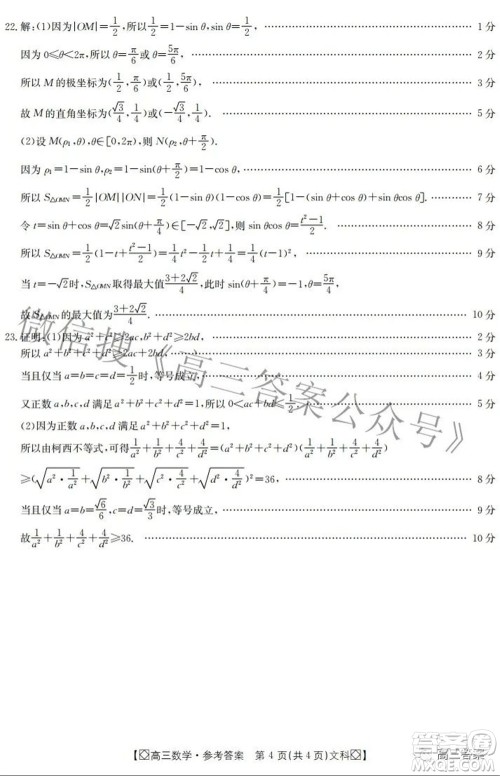 22.解:(1)因为|OM|=1/2,所以1/2=1-sin θ,sin θ=1/2. 1分
因为0≤θ<2π,所以θ=π/6或θ=5π/6. 2分
所以M的极坐标为(1/2,π/6)或(1/2,5π/6). 3分
故M的直角坐标为(√3/4,1/4)或(-√3/4,1/4). 5分
(2)设M(ρ₁,θ),θ∈[0,2π),则N(ρ₂,θ+π/2).
因为ρ₁=1-sin θ,ρ₂=1-sin(θ+π/2)=1-cos θ, 6分
所以S△OMN=1/2|OM||ON|=1/2(1-sin θ)(1-cos θ)=1/2[1-(sin θ+cos θ)+sin θcos θ]. 7分
令t=sin θ+cos θ=√2sin(θ+π/4)∈[-√2,√2],则sin θcos θ=(t²-1)/2. 8分
所以S△OMN=1/2(1-t+(t²-1)/2)=1/4t²-1/2t+1/4=1/4(t-1)², 9分
当t=-√2时,S△OMN取得最大值(3+2√2)/4,此时sin(θ+π/4)=-1,θ=5π/4,
故S△OMN的最大值为(3+2√2)/4. 10分
23.证明:(1)因为a²+c²≥2ac,b²+d²≥2bd, 2分
所以a²+b²+c²+d²≥2ac+2bd, 3分
当且仅当a=b=c=d=1/2时,等号成立, 4分
又正数a,b,c,d满足a²+b²+c²+d²=1,所以ac+bd≤1/2. 5分
(2)因为正数a,b,c,d满足a²+b²+c²+d²=1,
所以由柯西不等式,可得1/a²+1/b²+4/c²+4/d²=(a²+b²+c²+d²)(1/a²+1/b²+4/c²+4/d²)
≥(√(a²·1/a²)+√(b²·1/b²)+√(c²·4/c²)+√(d²·4/d²))²=36, 8分
当且仅当a=b=√6/6,c=d=√3/3时,等号成立, 9分
故1/a²+1/b²+4/c²+4/d²≥36. 10分
微信搜《高三答案公众号》
【高三数学·参考答案 第4页(共4页)文科】
高三答案